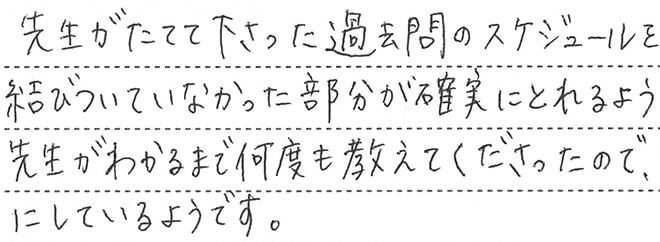 先生がたてて下さった過去問のスケジュールを
結びついていなかった部分が確実にとれるよう
先生がわかるまで何度も教えてくださったので、
にしているようです。